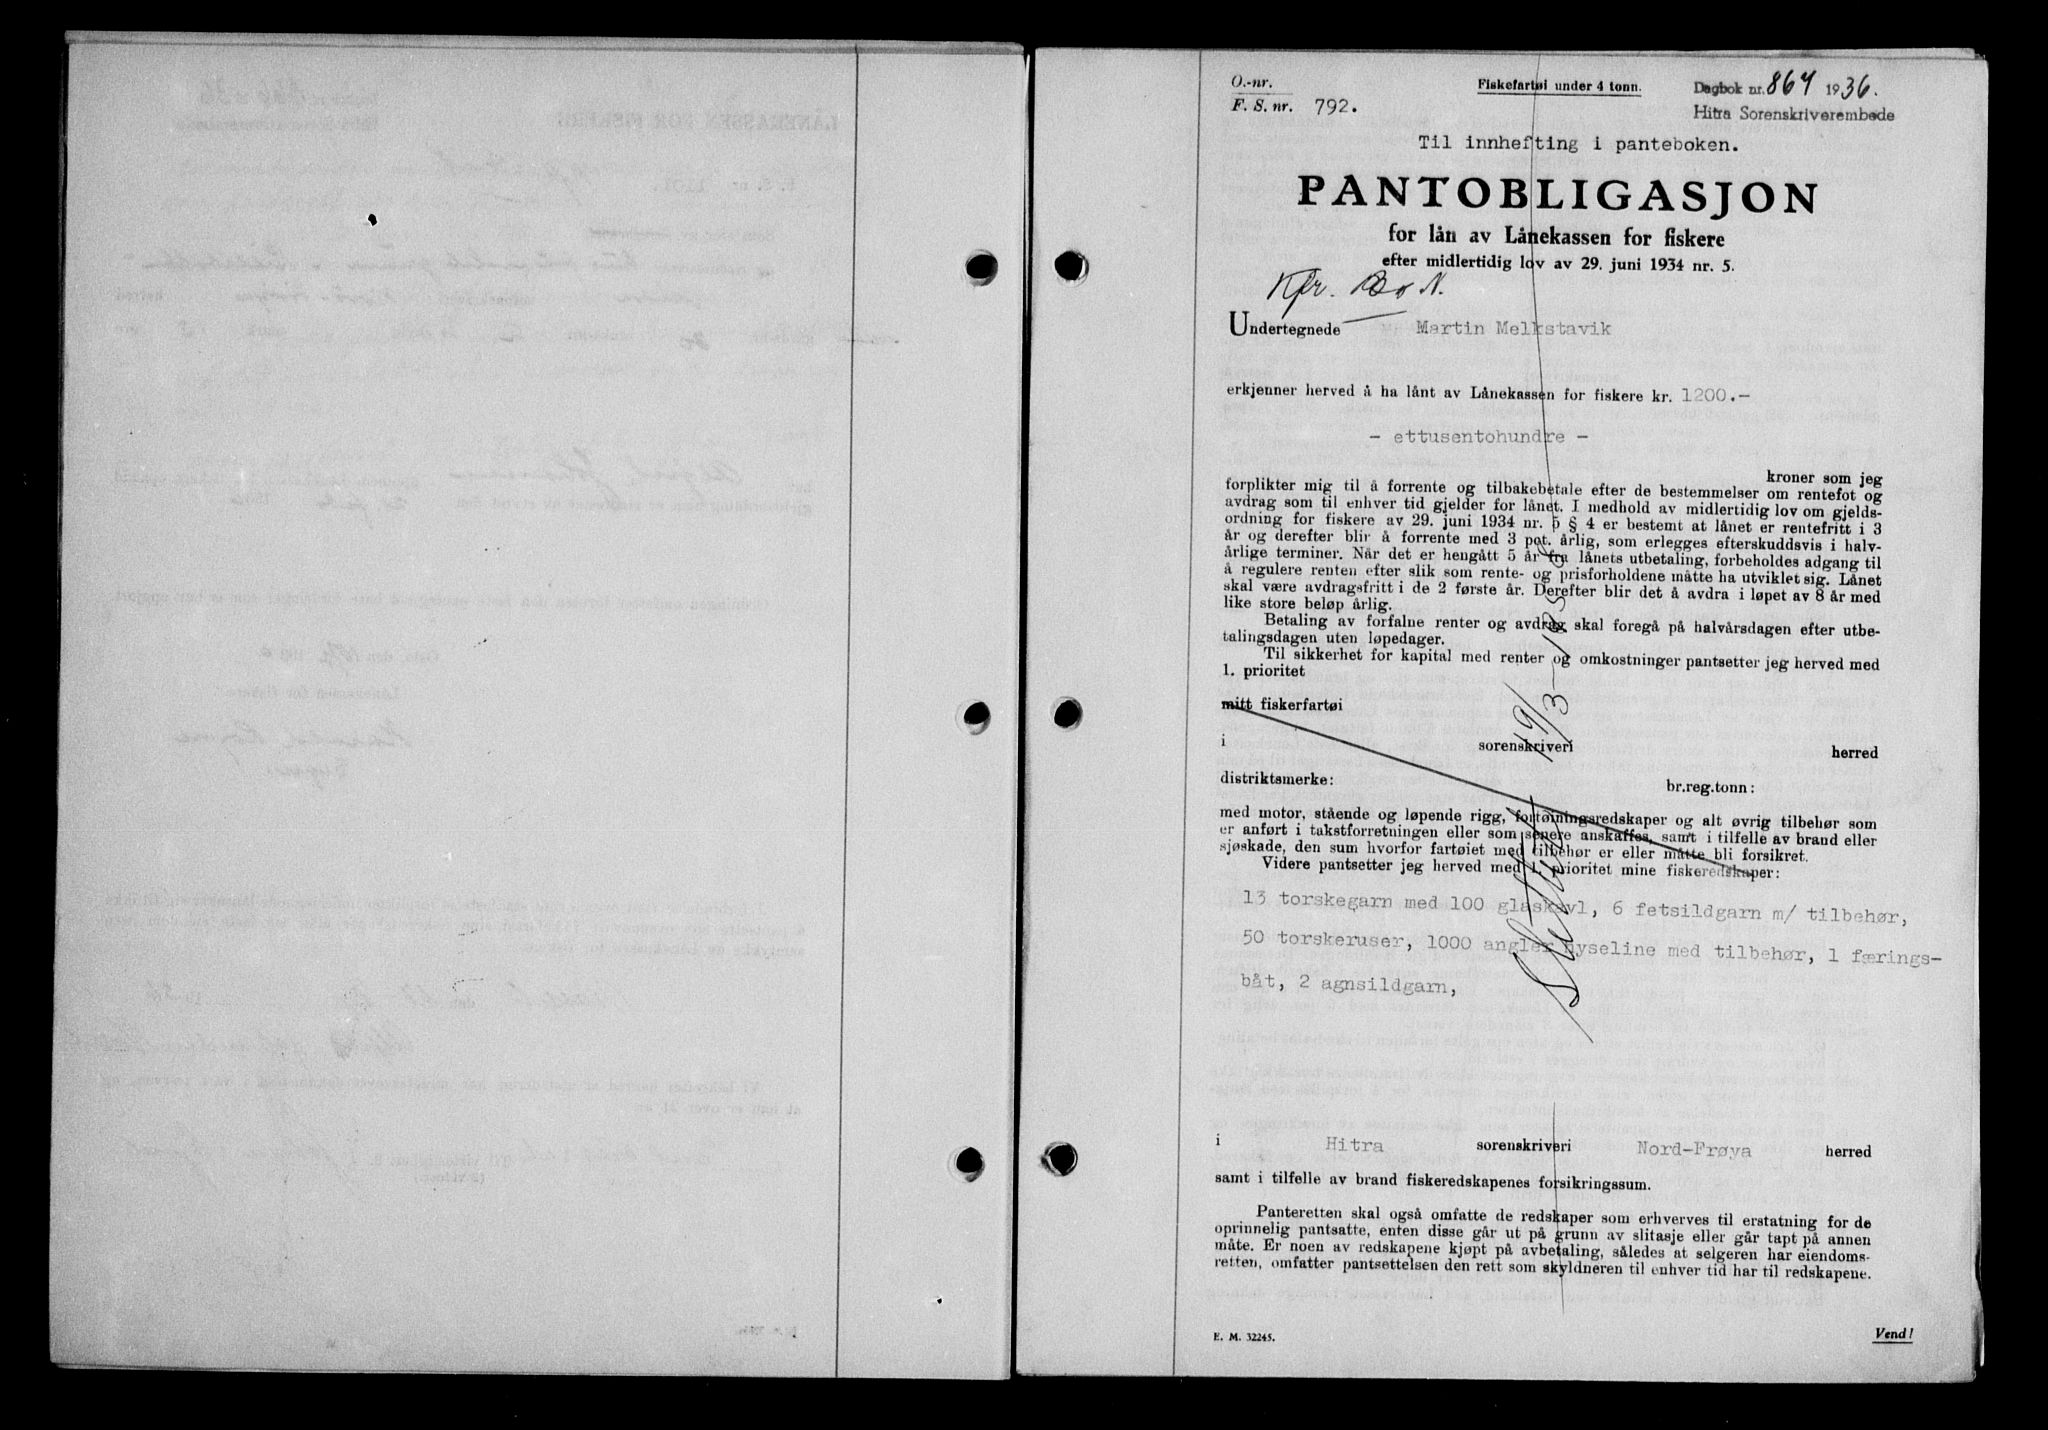 O.-nr.
Fiskefartøi under 4 tonn.
Dagbok nr. 864 1936.
F. S. nr. 792.
Hitra Sorenskriverembede
Til innhefting i panteboken.
PANTOBLIGASJON
for lån av Lånekassen for fiskere
efter midlertidig lov av 29. juni 1934 nr. 5.
Kfr. N.
Undertegnede Martin Melkstavik
erkjenner herved å ha lånt av Lånekassen for fiskere kr. 1200.-
- ettusentohundre -
kroner som jeg
forplikter mig til å forrente og tilbakebetale efter de bestemmelser om rentefot og
avdrag som til enhver tid gjelder for lånet. I medhold av midlertidig lov om gjelds-
ordning for fiskere av 29. juni 1934 nr. 5 § 4 er bestemt at lånet er rentefritt i 3
år og derefter blir å forrente med 3 pct. årlig, som erlegges efterskuddsvis i halv-
årlige terminer. Når det er hengått 5 år fra lånets utbetaling, forbeholdes adgang til
å regulere renten efter slik som rente- og prisforholdene måtte ha utviklet sig. Lånet
skal være avdragsfritt i de 2 første år. Derefter blir det å avdra i løpet av 8 år med
like store beløp årlig.
Betaling av forfalne renter og avdrag skal foregå på halvårsdagen efter utbe-
talingsdagen uten løpedager.
Til sikkerhet for kapital med renter og omkostninger pantsetter jeg herved med
1. prioritet
mitt fiskerfartøi
i sorenskriveri herred
distriktsmerke: br.reg.tonn:
med motor, stående og løpende rigg, fortøiningsredskaper og alt øvrig tilbehør som
er anført i takstforretningen eller som senere anskaffes, samt i tilfelle av brand eller
sjøskade, den sum hvorfor fartøiet med tilbehør er eller måtte bli forsikret.
Videre pantsetter jeg herved med 1. prioritet mine fiskeredskaper:
13 torskegarn med 100 glaskavl, 6 fetsildgarn m/ tilbehør,
50 torskeruser, 1000 angler hyseline med tilbehør, 1 færings-
båt, 2 agnsildgarn,
Slettet 19/3-
i Hitra sorenskriveri Nord-Frøya herred
samt i tilfelle av brand fiskeredskapenes forsikringssum.
Panteretten skal også omfatte de redskaper som erhverves til erstatning for de
oprinnelig pantsatte, enten disse går ut på grunn av slitasje eller går tapt på annen
måte. Er noen av redskapene kjøpt på avbetaling, således at selgeren har eiendoms-
retten, omfatter pantsettelsen den rett som skyldneren til enhver tid har til redskapene.
E. M. 32245.
Vend!